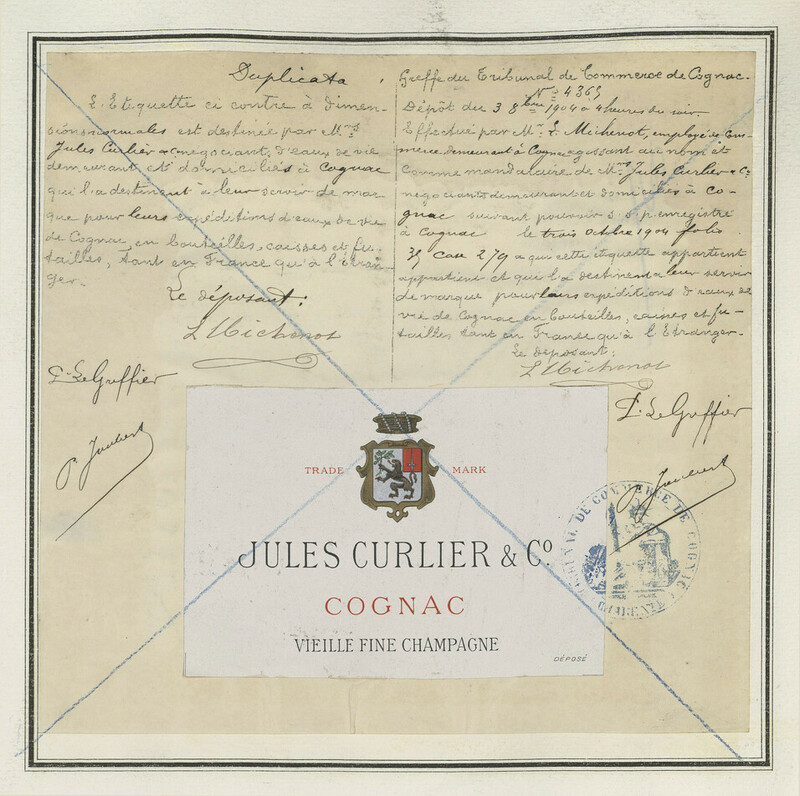 Duplicata
L'Etiquette ci contre à dimen-
sions normales est destinée par M.rs
Jules Curlier & Co négociants d'eaux de vie
demeurant et domiciliés à Cognac
qui l'a destinent à leur servir de mar
que pour leurs expéditions d'eaux de vie
de Cognac, en bouteilles, caisses et fu-
tailles, tant en France qu'à l'étran-
ger.
Le déposant:
L Michenot
P. Le Greffier
P Joubert
Greffe du Tribunal de Commerce de Cognac.
No 4365
Dépôt du 3 8bre 1904 à 4 heures du soir
Effectué par Mr L. Michenot, employé de Com-
merce demeurant à Cognac agissant au nom et
comme mandataire de M.rs Jules Curlier & Co
négociants demeurant et domiciliés à Co-
gnac suivant pouvoir s. s. p. enregistré
à Cognac le trois Octobre 1904 folio
35 case 279 à qui cette étiquette appartient
appartient et qui l'a destinent à leur servir
de marque pour leurs expéditions d'eaux de
vie de Cognac en bouteilles, caisses et fu-
tailles tant en France qu'à l'Etranger-
Le déposant:
L Michenot
P. Le Greffier
P Joubert
TRADE MARK
JULES CURLIER & Co.
COGNAC
VIEILLE FINE CHAMPAGNE
DÉPOSÉ
TRIBUNAL DE COMMERCE DE COGNAC
CHARENTE